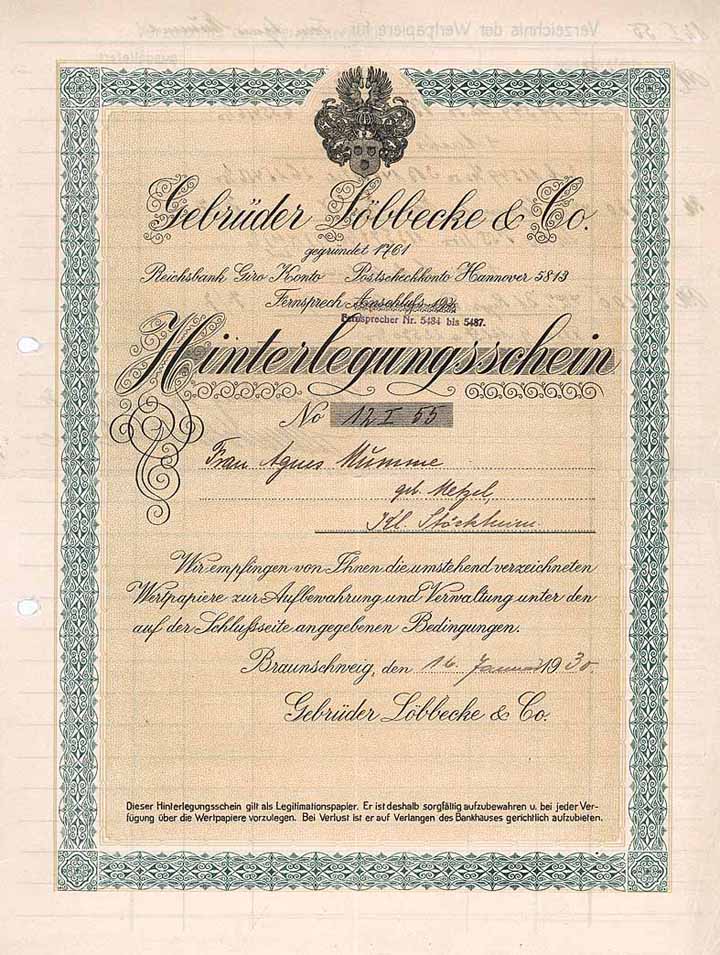 Verzeichnis der Wertpapiere für
Gebrüder Löbbecke & Co.
gegründet 1761
Reichsbank Giro Konto Postscheckkonto Hannover 5813
Fernsprech Anschluß
Fernsprecher Nr. 5484 bis 5487.
Hinterlegungsschein
No 12 I 55
Frau Agnes Mumme
geb. Metzel,
Kl. Stöckheim.
Wir empfingen von Ihnen die umstehend verzeichneten
Wertpapiere zur Aufbewahrung und Verwaltung unter den
auf der Schlußseite angegebenen Bedingungen.
Braunschweig, den 16. Januar 1930.
Gebrüder Löbbecke & Co.
Dieser Hinterlegungsschein gilt als Legitimationspapier. Er ist deshalb sorgfältig aufzubewahren u. bei jeder Ver-
fügung über die Wertpapiere vorzulegen. Bei Verlust ist er auf Verlangen des Bankhauses gerichtlich aufzubieten.